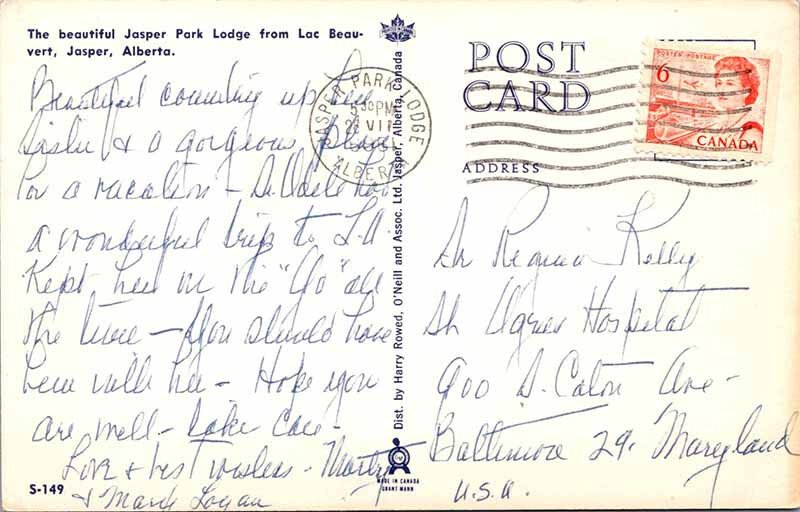 The beautiful Jasper Park Lodge from Lac Beau-
vert, Jasper, Alberta.
Beautiful country up here
Sister & a gorgeous place
for a vacation - Sr. Adele had
a wonderful trip to L.A.
Kept her on the "Go" all
the time - You should have
been with her - Hope you
are well - Take care -
Love & best wishes - Marty
& Mark Logan
S-149
Dist. by Harry Rowed, O'Neill and Assoc. Ltd. Jasper, Alberta, Canada
MADE IN CANADA
GRANT MANN
POST
CARD
ADDRESS
JASPER PARK LODGE
5 30 PM
VII
ALBERTA
POSTES POSTAGE
6
CANADA
Sr Regina Kelly
St Agnes Hospital
900 S. Caton Ave -
Baltimore 29, Maryland
U.S.A.